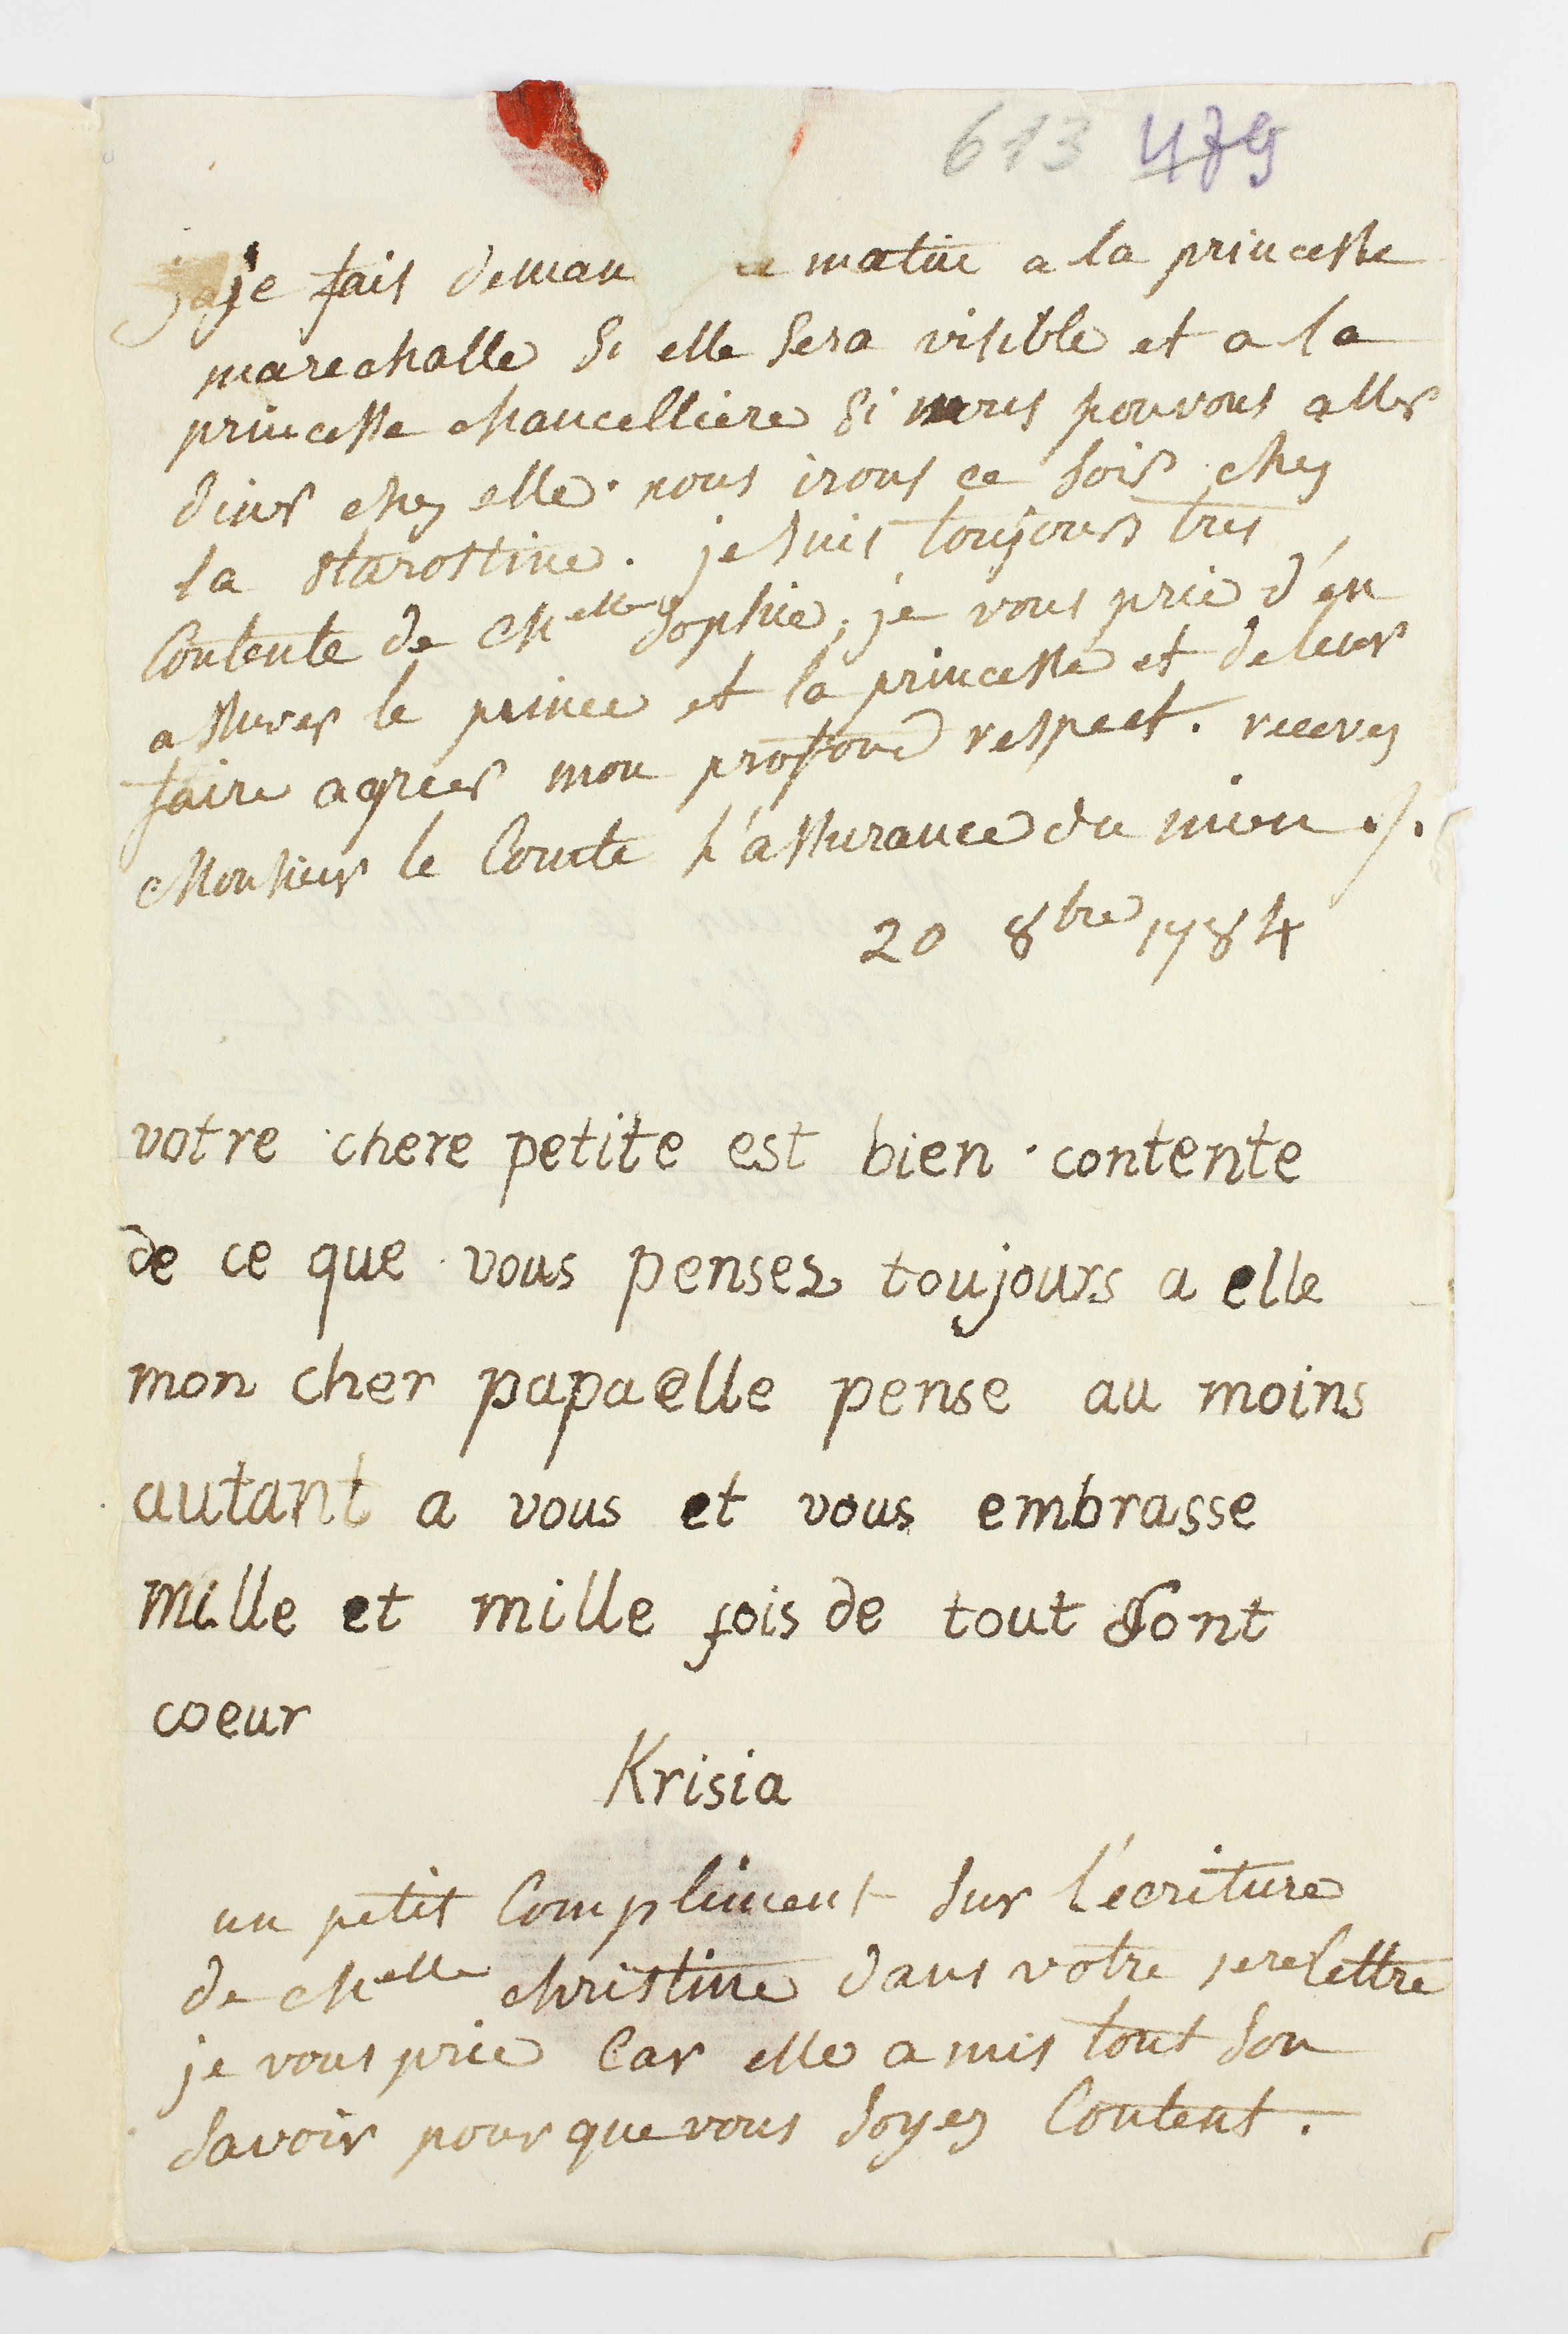 613 479
je fais deman ce matin a la princesse
marechalle si elle sera visible et a la
princesse chancelliere si nous pouvons aller
diner chez elle. nous irons ce soir chez
la starostine. je suis toujours tres
Contente de Melle Sophie, je vous prie d'en
assurer le prince et la princesse et de leur
faire agreer mon profond respect. recevez
Monsieur le Comte l'assurance du mien ./.
20 8bre 1784
votre chere petite est bien contente
de ce que vous pensez toujours a elle
mon cher papa elle pense au moins
autant a vous et vous embrasse
mille et mille fois de tout sont
coeur
Krisia
un petit Compliment sur l'écriture
de Melle christine dans votre 1ere lettre
je vous prie Car elle a mis tout son
savoir pour que vous soyez Content.